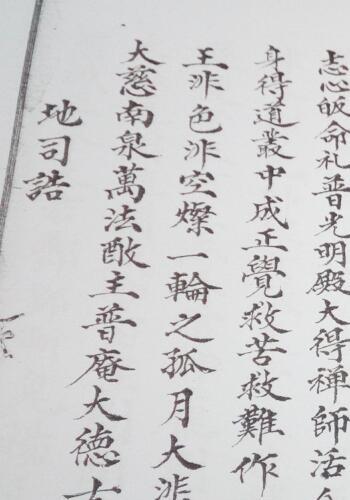 志心皈命礼普光明殿大得禅師活
身得道叢中成正覺救苦救難作
王非色非空燦一輪之孤月大非
大慈南泉萬法教主普庵大德古
地司誥